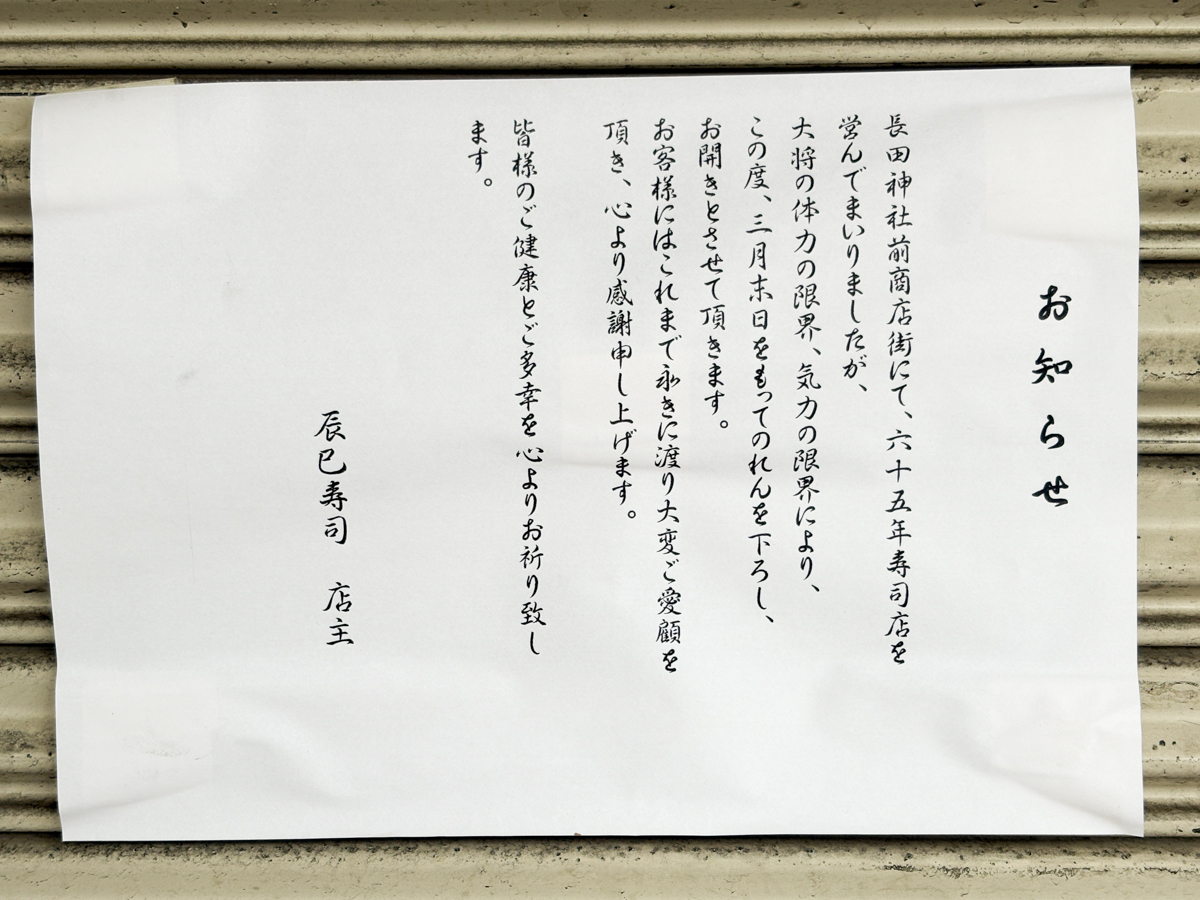 お知らせ
長田神社前商店街にて、六十五年寿司店を
営んでまいりましたが、
大将の体力の限界、気力の限界により、
この度、三月末日をもってのれんを下ろし、
お開きとさせて頂きます。
お客様にはこれまで永きに渡り大変ご愛顧を
頂き、心より感謝申し上げます。
皆様のご健康とご多幸を心よりお祈り致し
ます。
辰巳寿司　店主